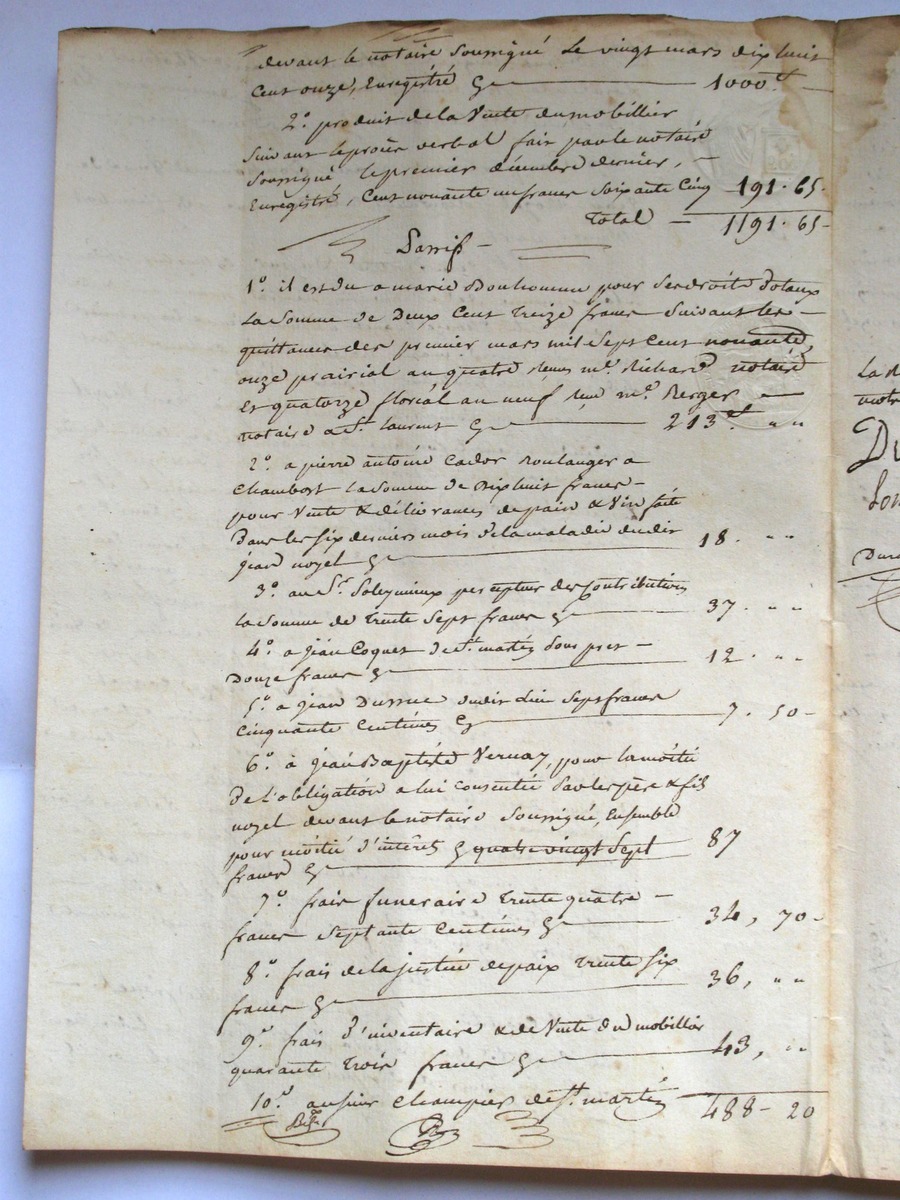 devant le notaire Soussigné Le vingt mars dix huit
Cent onze, Enregistré 1000.
2.° produit de la Vente du mobillier
Suivant le procès verbal fait par le notaire
Soussigné le premier décembre dernier, -
Enregistré, Cent nonante un francs Soixante Cinq 191. 65.
Total — 1191. 65-
Passif -
1.° il est du a marie Bonhomme pour Ses droits dotaux
La Somme de Deux Cent treize francs Suivant les -
quittances des premier mars mil Sept Cent nonante,
onze prairial an quatre Reçues m.e Richard notaire
et quatorze floréal an neuf Reçue m.e Berger
notaire a St. laurent 213. " "
2.° a pierre antoine Cador Boulanger a
Chambost la Somme de Dix huit francs -
pour Vente & délivrances de pain & Vin faite
Dans les Six derniers mois de la maladie dudit
jean noyel 18. " "
3.° au Sr. Soleymieux percepteur des Contributions
la Somme de trente Sept francs 37. " "
4.° a jean Coquet de St. martin Sous pret -
Douze francs 12. " "
5.° a jean Dussuc dudit lieu Sept francs
Cinquante Centimes 7. 50-
6.° à jean Baptiste Vernay, pour la moitié
De l'obligation a lui consentie par les père & fils
noyel devant le notaire Soussigné, Ensemble
pour moitié d'intérêts quatre vingt Sept 87
francs
7.° frais funeraire trente quatre -
francs Septante Centimes 34, 70-
8.° frais de la justice de paix trente Six
francs 36, " "
9.° frais d'inventaire & de Vente du mobillier
quarante trois francs 43, " "
10.° au Sieur Champier de St. martin 488- 20
La
notre
Du